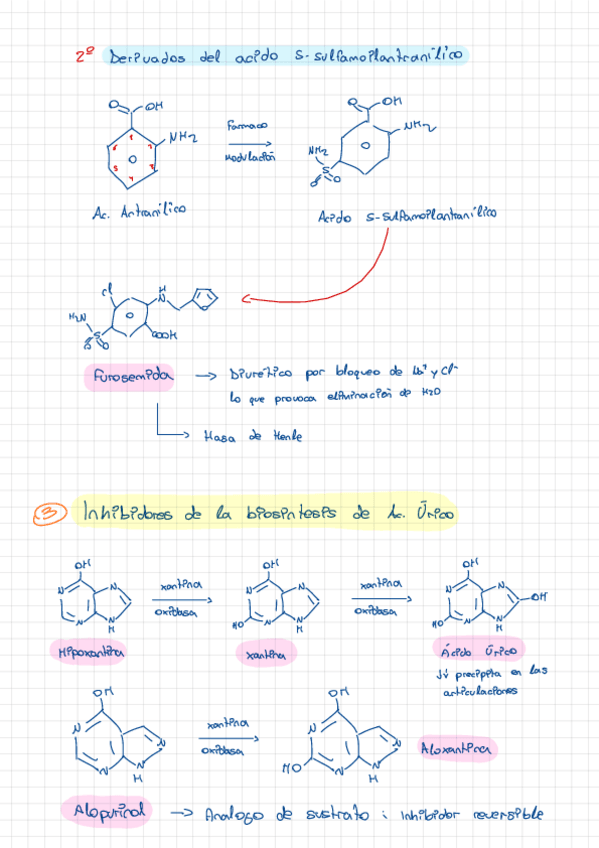 2º Derivados del acido 5-sulfamoilantranilico
O OH
NH2
Farmaco
Modulación
O OH
NH2
NH2
S
O O
1 2 3 4 5 6
Ac. Antranilico
Acido 5-sulfamoilantranilico
Cl
H
N
O
H2N
S
O O
COOH
Furosemida → Diuretico por bloqueo de Na+ y Cl-
lo que provoca eliminación de H2O
Hasa de Henle
3 Inhibidores de la biosintesis de Ac. Úrico
OH
N N
N N
H
xantina
oxidasa
OH
N N
HO N N
H
xantina
oxidasa
OH
N N
OH
HO N N
H
Hipoxantina
xantina
Ácido Úrico
↓↓ precipita en las
articulaciones
OH
N
N
N N
H
xantina
oxidasa
OH
N
N
HO N N
H
Aloxantina
Alopurinol → Analogo de sustrato : inhibidor reversible